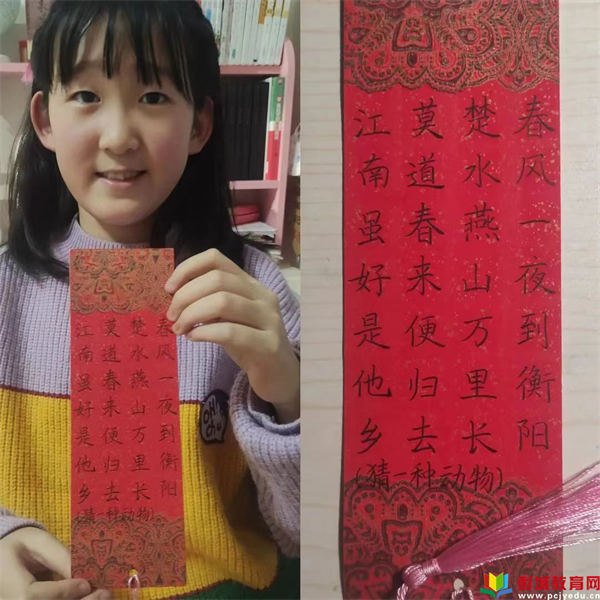 春风一夜到衡阳
楚水燕山万里长
莫道春来便归去
江南虽好是他乡
(猜一种动物)
OH!
春风一夜到衡阳
楚水燕山万里长
莫道春来便归去
江南虽好是他乡
(猜一种动物)
教育网
www.pcjyedu.cn